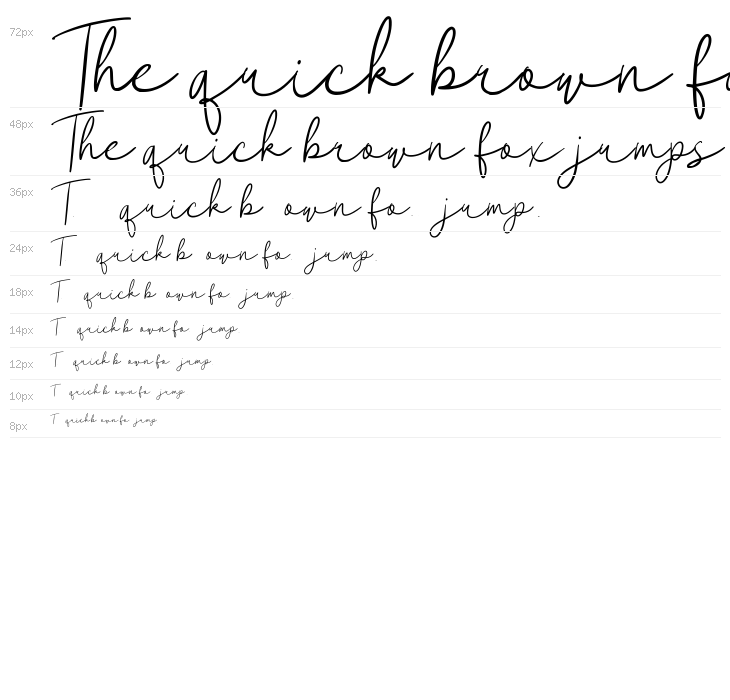 72px The quick brown fo
48px The quick brown fox jumps
36px T quick b own fo jump
24px T quick b own fo jump
18px T quick b own fo jump
14px T quick b own fo jump
12px T quick b own fo jump
10px T quick b own fo jump
8px T quick b own fo jump